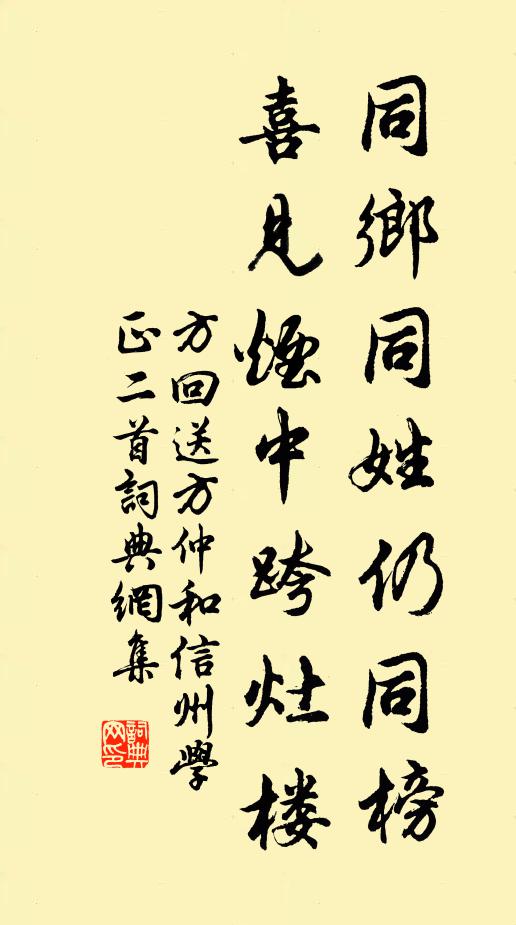 同鄉同姓仍同榜
喜見煙中跨灶楼
方回送方仲和信州學
正二首詞典網集
詞典
网印